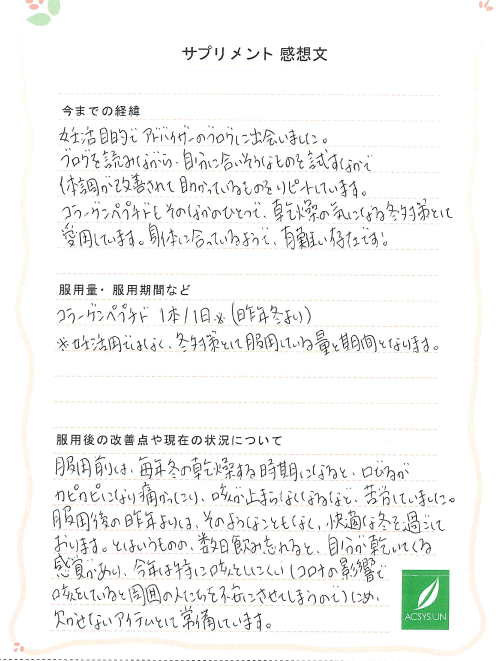 サプリメント 感想文
今までの経緯
妊活目的でアドバイザーのブログに出会いました。
ブログを読みながら、自分に合いそうなものを試すなかで
体調が改善されて助かっているものをリピートしています。
コラーゲンペプチドもそのなかのひとつで、乾燥の気になる冬対策として
愛用しています。身体に合っているようで、有難い存在です!
服用量・服用期間など
コラーゲンペプチド 1本/1日※(昨年冬より)
※妊活用ではなく、冬対策として服用している量と期間となります。
服用後の改善点や現在の状況について
服用前は、毎年冬の乾燥する時期になると、口びるが
カピカピになり痛かったり、咳が止まらなくなるなど、苦労していました。
服用後の昨年よりは、そのようなこともなく、快適な冬を過ごして
おります。とはいうものの、数日飲み忘れると、自分が乾いてくる
感覚があり、今年は特に咳をしにくい(コロナの影響で
咳をしていると周囲の人たちを不安にさせてしまうので)ため、
欠かせないアイテムとして常備しています。
ACSYSUN